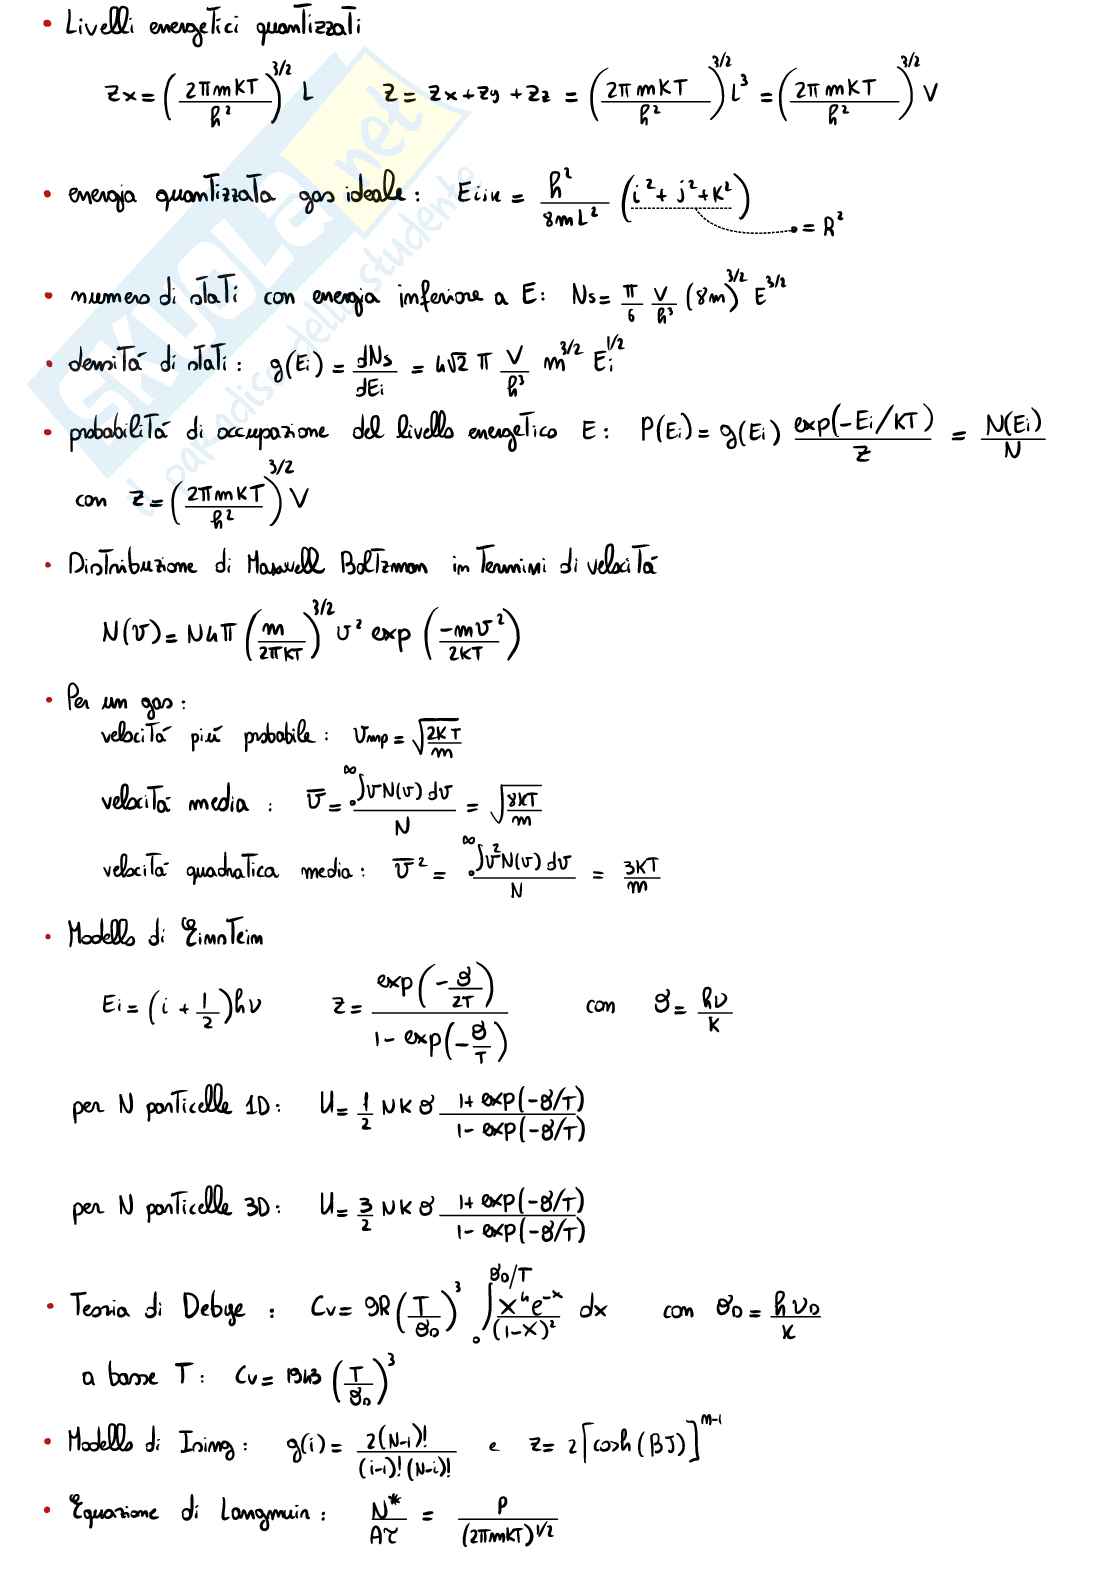 • Livelli energetici quantizzati
Zx = (2πmKT / h²)^3/2 L    Z = Zx + Zy + Zz = (2πmKT / h²)^3/2 L³ = (2πmKT / h²)^3/2 V
• energia quantizzata gas ideale: Eijk = h² / 8mL² (i² + j² + k²)
= R²
• numero di stati con energia inferiore a E: Ns = π/6 V/h³ (8m)^3/2 E^3/2
• densitá di stati: g(Ei) = dNs / dEi = 4√2 π V/h³ m^3/2 Ei^1/2
• probabilitá di occupazione del livello energetico E: P(Ei) = g(Ei) exp(-Ei/KT) / Z = N(Ei) / N
con Z = (2πmKT / h²)^3/2 V
• Distribuzione di Maxwell Boltzman in termini di velocitá
N(v) = N4π (m / 2πKT)^3/2 v² exp (-mv² / 2KT)
• Per un gas:
velocitá piú probabile: vmp = √(2KT / m)
velocitá media: v̄ = ₀∫^∞ vN(v) dv / N = √(8KT / m)
velocitá quadratica media: v̄² = ₀∫^∞ v²N(v) dv / N = 3KT / m
• Modello di Einstein
Ei = (i + 1/2)hν    Z = exp(-θ/2T) / 1 - exp(-θ/T)    con θ = hν / K
per N particelle 1D: U = 1/2 NKθ 1+ exp(-θ/T) / 1- exp(-θ/T)
per N particelle 3D: U = 3/2 NKθ 1+ exp(-θ/T) / 1- exp(-θ/T)
• Teoria di Debye: Cv = 9R (T / θD)³ ₀∫^θD/T x⁴e^-x / (1-x)² dx    con θD = hνD / K
a basse T: Cv = 1943 (T / θD)³
• Modello di Ising: g(i) = 2(N-1)! / (i-1)! (N-i)! e Z = 2[cosh(βJ)]^n-1
• Equazione di Langmuir: N* / Aτ = P / (2πmKT)^1/2
SKUOLA.net
il paradiso dello studente